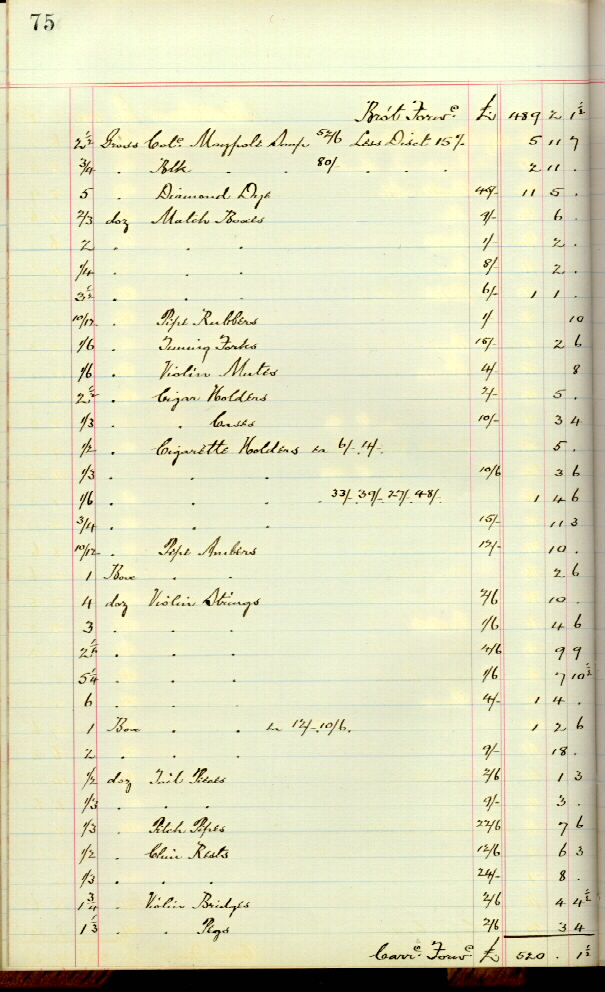 75
Bro't Forwd £ 489 2 1½
2½ Gross Cold Maypole Soap 52/6 Less Disct 15% 5 11 7
¾ . Blk . . 80/- . . . 2 11 .
5 . Diamond Dye 45/- 11 5 .
2/3 doz Match Boxes 9/- 6 .
2 . . . 1/- 2 .
1/4 . . . 8/- 2 .
3½ . . . 6/- 1 1 .
10/12 . Pipe Rubbers 1/- 10
1/6 . Tuning Forks 15/- 2 6
1/6 . Violin Mutes 4/- 8
2½ . Cigar Holders 2/- 5 .
1/3 . . Cases 10/- 3 4
1/2 . Cigarette Holders 6/- 14/- 5 .
1/3 . . . 10/6 3 6
1/6 . . . 33/- 39/- 27/- 48/- 1 4 6
3/4 . . . 15/- 11 3
10/12 . Pipe Ambers 12/- 10 .
1 Box . . 2 6
4 doz Violin Strings 2/6 10 .
3 . . . 1/6 4 6
2¼ . . . 4/6 9 9
5¼ . . . 1/6 7 10½
6 . . . 4/- 1 4 .
1 Box . . 12/- 10/6. 1 2 6
2 . . . 9/- 18 .
1/2 doz Tail Pieces 2/6 1 3
1/3 . . . 9/- 3 .
1/3 . Pitch Pipes 22/6 7 6
1/2 . Chin Rests 12/6 6 3
1/3 . . . 24/- 8 .
1¾ . Violin Bridges 2/6 4 4½
1⅓ . . Pegs 2/6 3 4
Carrd Forwd £ 520 . 1½